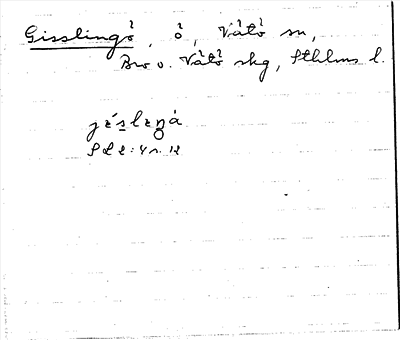 Gisslingö, ö, Vätö sn,
Bro o. Vätö skg, Sthlms l.
SL 2:4 s. 12